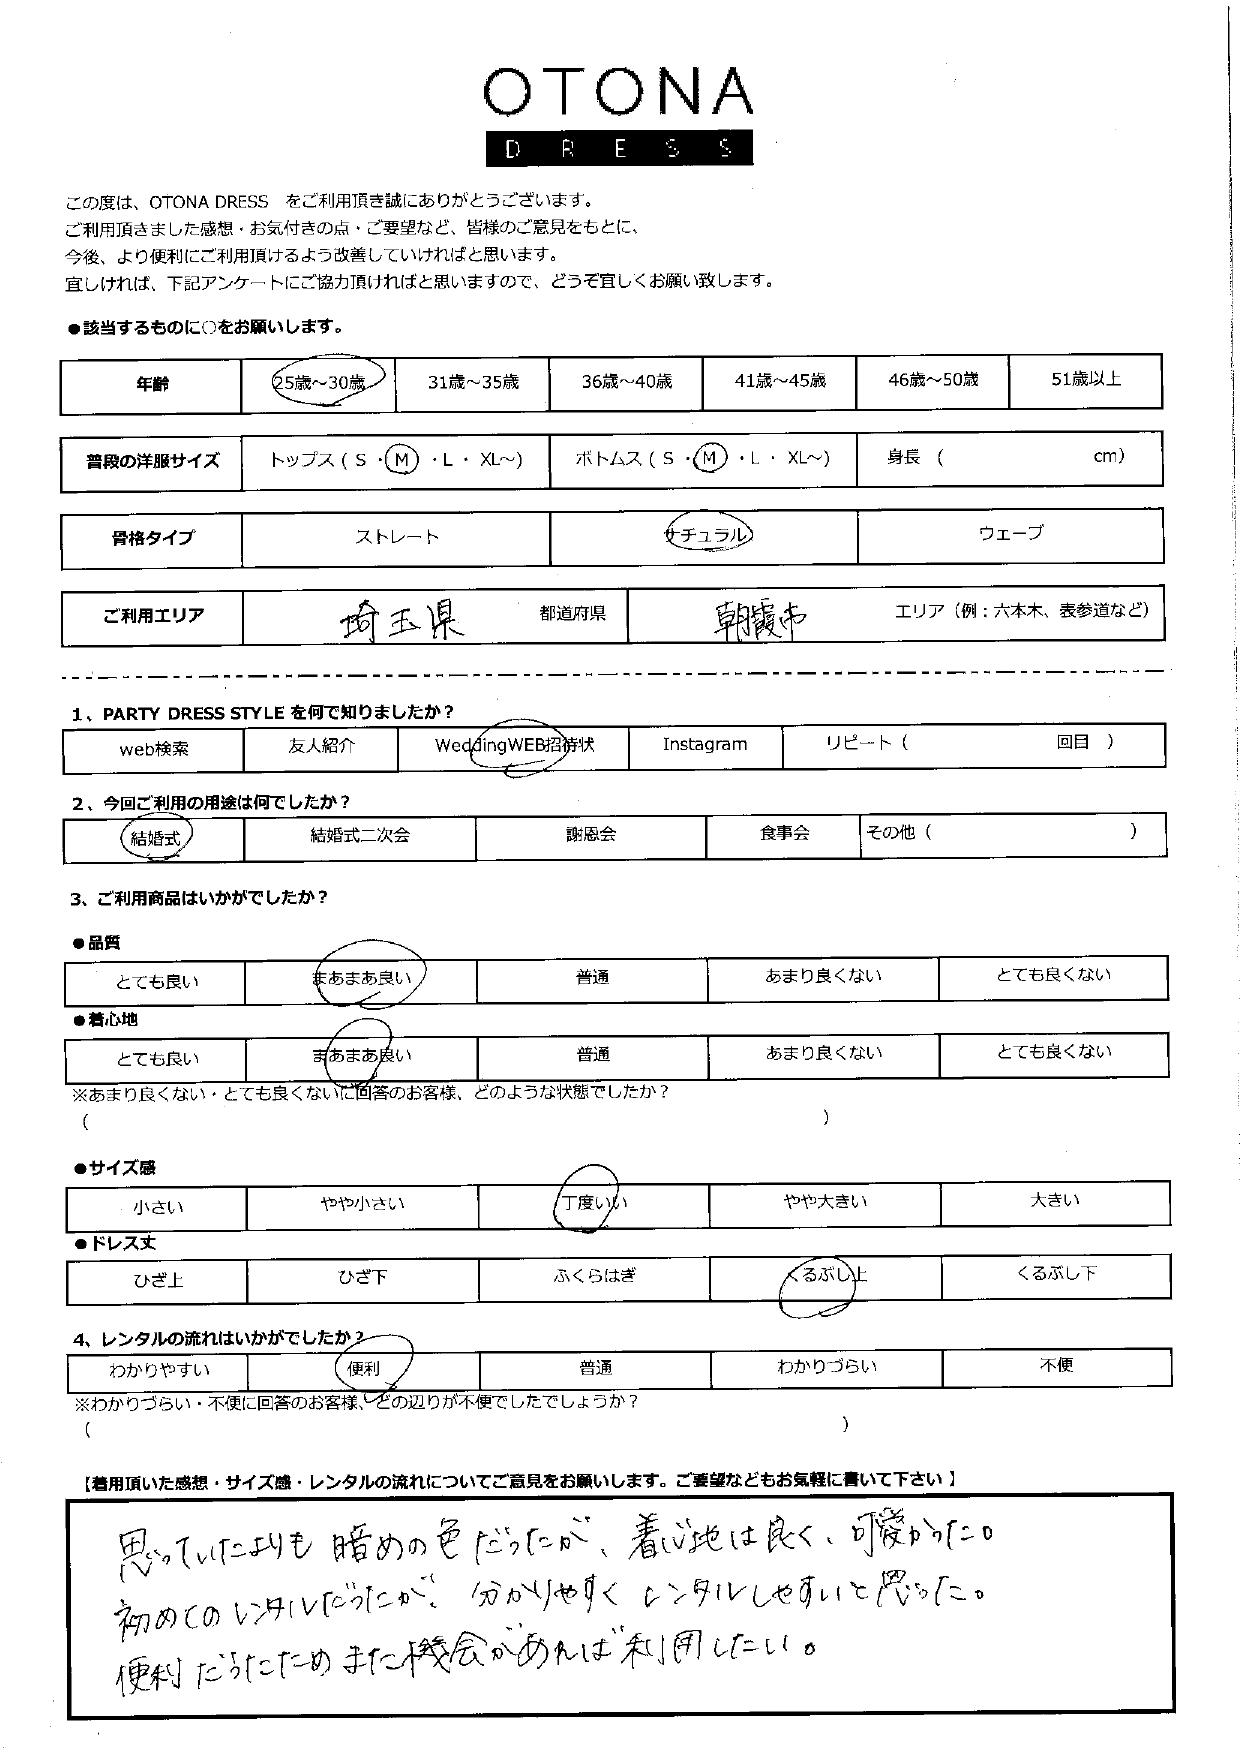 OTONA
DRESS
この度は、OTONA DRESS　をご利用頂き誠にありがとうございます。
ご利用頂きました感想・お気付きの点・ご要望など、皆様のご意見をもとに、
今後、より便利にご利用頂けるよう改善していければと思います。
宜しければ、下記アンケートにご協力頂ければと思いますので、どうぞ宜しくお願い致します。
●該当するものに○をお願いします。
年齢 25歳～30歳 31歳～35歳 36歳～40歳 41歳～45歳 46歳～50歳 51歳以上
普段の洋服サイズ トップス（ S ・ M ・ L ・ XL～） ボトムス（ S ・ M ・ L ・ XL～） 身長（ cm）
骨格タイプ ストレート ナチュラル ウェーブ
ご利用エリア 埼玉県 都道府県 朝霞市 エリア（例：六本木、表参道など）
1、PARTY DRESS STYLE を何で知りましたか？
web検索 友人紹介 WeddingWEB招待状 Instagram リピート（ 回目 ）
2、今回ご利用の用途は何でしたか？
結婚式 結婚式二次会 謝恩会 食事会 その他（ ）
3、ご利用商品はいかがでしたか？
●品質
とても良い まあまあ良い 普通 あまり良くない とても良くない
●着心地
とても良い まあまあ良い 普通 あまり良くない とても良くない
※あまり良くない・とても良くないに回答のお客様、どのような状態でしたか？
（ ）
●サイズ感
小さい やや小さい 丁度いい やや大きい 大きい
●ドレス丈
ひざ上 ひざ下 ふくらはぎ くるぶし上 くるぶし下
4、レンタルの流れはいかがでしたか？
わかりやすい 便利 普通 わかりづらい 不便
※わかりづらい・不便に回答のお客様、どの辺りが不便でしたでしょうか？
（ ）
【着用頂いた感想・サイズ感・レンタルの流れについてご意見をお願いします。ご要望などもお気軽に書いて下さい】
思っていたよりも 暗めの色だったが、着心地は良く、可愛かった。
初めてのレンタルだったが、分かりやすく レンタルしやすいと思った。
便利だったため また機会があれば利用したい。